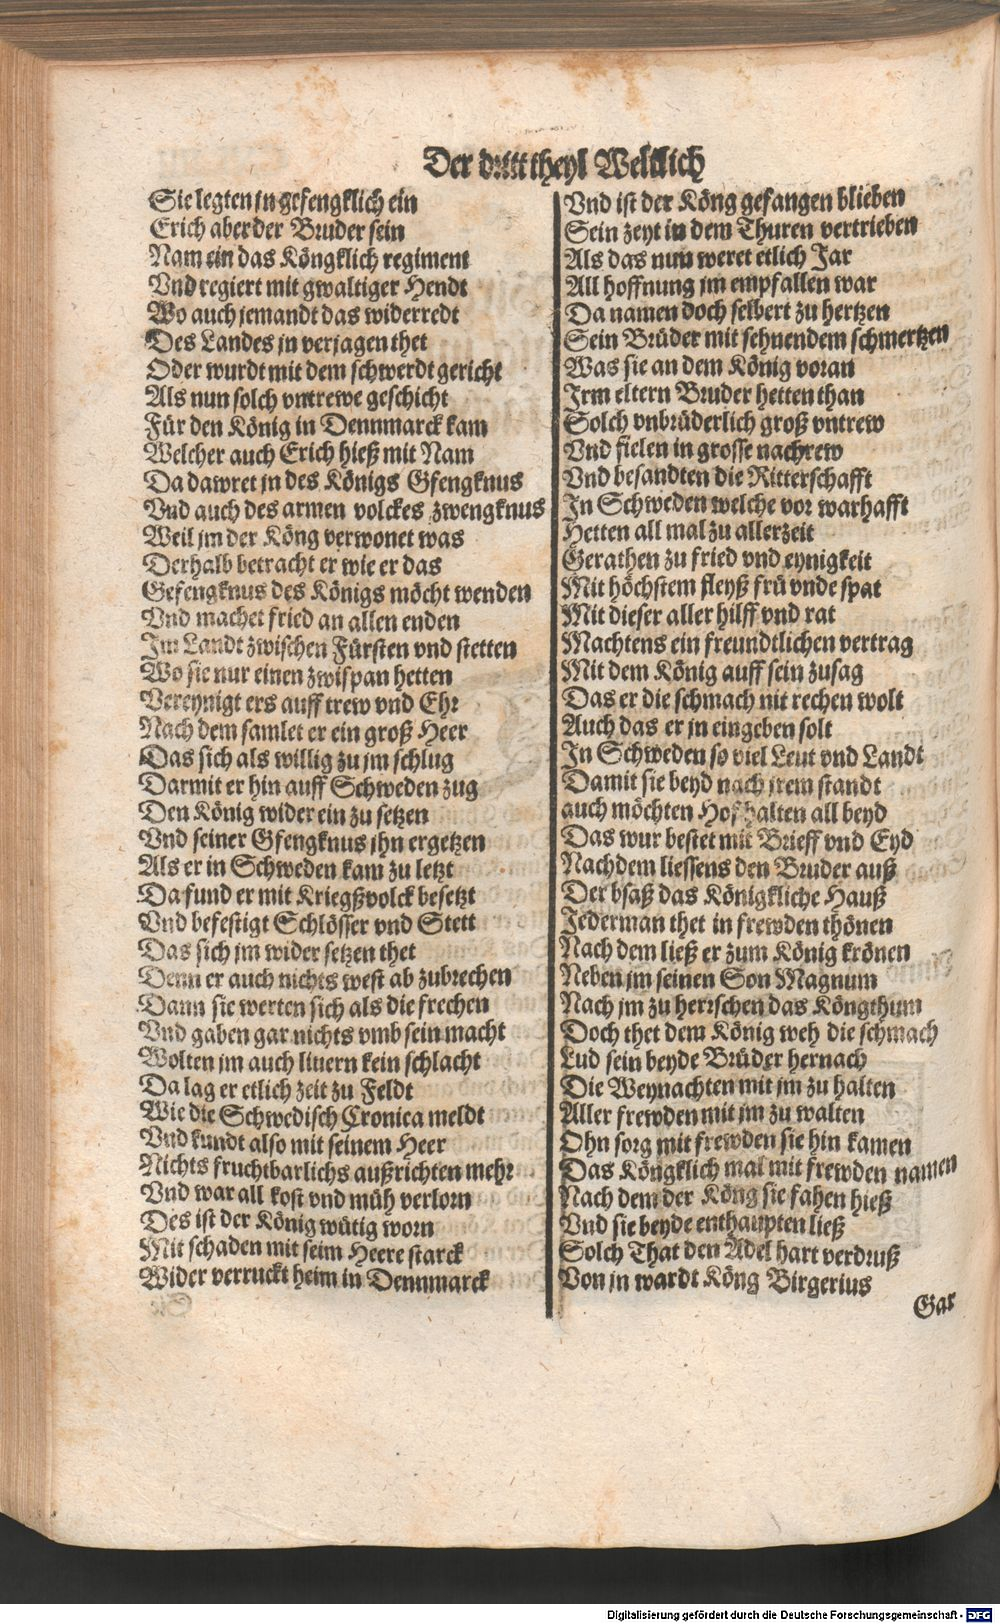 Der dritt theyl Weltlich
Sie legten jn gefengklich ein
Erich aber der Bruder sein
Nam ein das Köngklich regiment
Vnd regiert mit gwaltiger Hendt
Wo auch jemandt das widerredt
Des Landes jn verjagen thet
Oder wurdt mit dem schwerdt gericht
Als nun solch vntrewe geschicht
Für den König in Dennmarck kam
Welcher auch Erich hieß mit Nam
Da dawret jn des Königs Gfengknus
Vnd auch des armen volckes zwengknus
Weil jm der Köng verwonet was
Derhalb betracht er wie er das
Gefengknus des Königs möcht wenden
Vnd machet fried an allen enden
Im Landt zwischen Fürsten vnd stetten
Wo sie nur einen zwispan hetten
Vereynigt ers auff trew vnd Ehr
Nach dem samlet er ein groß Heer
Das sich als willig zu jm schlug
Darmit er hin auff Schweden zug
Den König wider ein zu setzen
Vnd seiner Gfengknus jhn ergetzen
Als er in Schweden kam zu letzt
Da fund er mit Kriegßvolck besetzt
Vnd befestigt Schlösser vnd Stett
Das sich jm wider setzen thet
Denn er auch nichts west ab zubrechen
Dann sie werten sich als die frechen
Vnd gaben gar nichts vmb sein macht
Wolten jm auch liuern kein schlacht
Da lag er etlich zeit zu Feldt
Wie die Schwedisch Cronica meldt
Vnd kundt also mit seinem Heer
Nichts fruchtbarlichs außrichten mehr
Vnd war all kost vnd müh verlorn
Des ist der König wütig worn
Mit schaden mit seim Heere starck
Wider verruckt heim in Dennmarck
Vnd ist der Köng gefangen blieben
Sein zeyt in dem Thuren vertrieben
Als das nun weret etlich Jar
All hoffnung jm empfallen war
Da namen doch selbert zu hertzen
Sein Brüder mit sehnendem schmertzen
Was sie an dem König voran
Irm eltern Bruder hetten than
Solch vnbrüderlich groß vntrew
Vnd fielen in grosse nachrew
Vnd besandten die Ritterschafft
In Schweden welche vor warhafft
Hetten all mal zu allerzeit
Gerathen zu fried vnd eynigkeit
Mit höchstem fleyß frü vnde spat
Mit dieser aller hilff vnd rat
Machtens ein freundtlichen vertrag
Mit dem König auff sein zusag
Das er die schmach nit rechen wolt
Auch das er jn eingeben solt
In Schweden so viel Leut vnd Landt
Damit sie beyd nach jrem standt
auch möchten Hof halten all beyd
Das wur bestet mit Brieff vnd Eyd
Nachdem liessens den Bruder auß
Der bsaß das Königkliche Hauß
Jederman thet in frewden thönen
Nach dem ließ er zum König krönen
Neben jm seinen Son Magnum
Nach jm zu herrschen das Köngthum
Doch thet dem König weh die schmach
Lud sein beyde Brüder hernach
Die Weynachten mit jm zu halten
Aller frewden mit jm zu walten
Ohn sorg mit frewden sie hin kamen
Das Köngklich mal mit frewden namen
Nach dem der Köng sie fahen hieß
Vnd sie beyde enthaupten ließ
Solch That den Adel hart verdruß
Von jn wardt Köng Birgerius
Gar
Digitalisierung gefördert durch die Deutsche Forschungsgemeinschaft - DFG